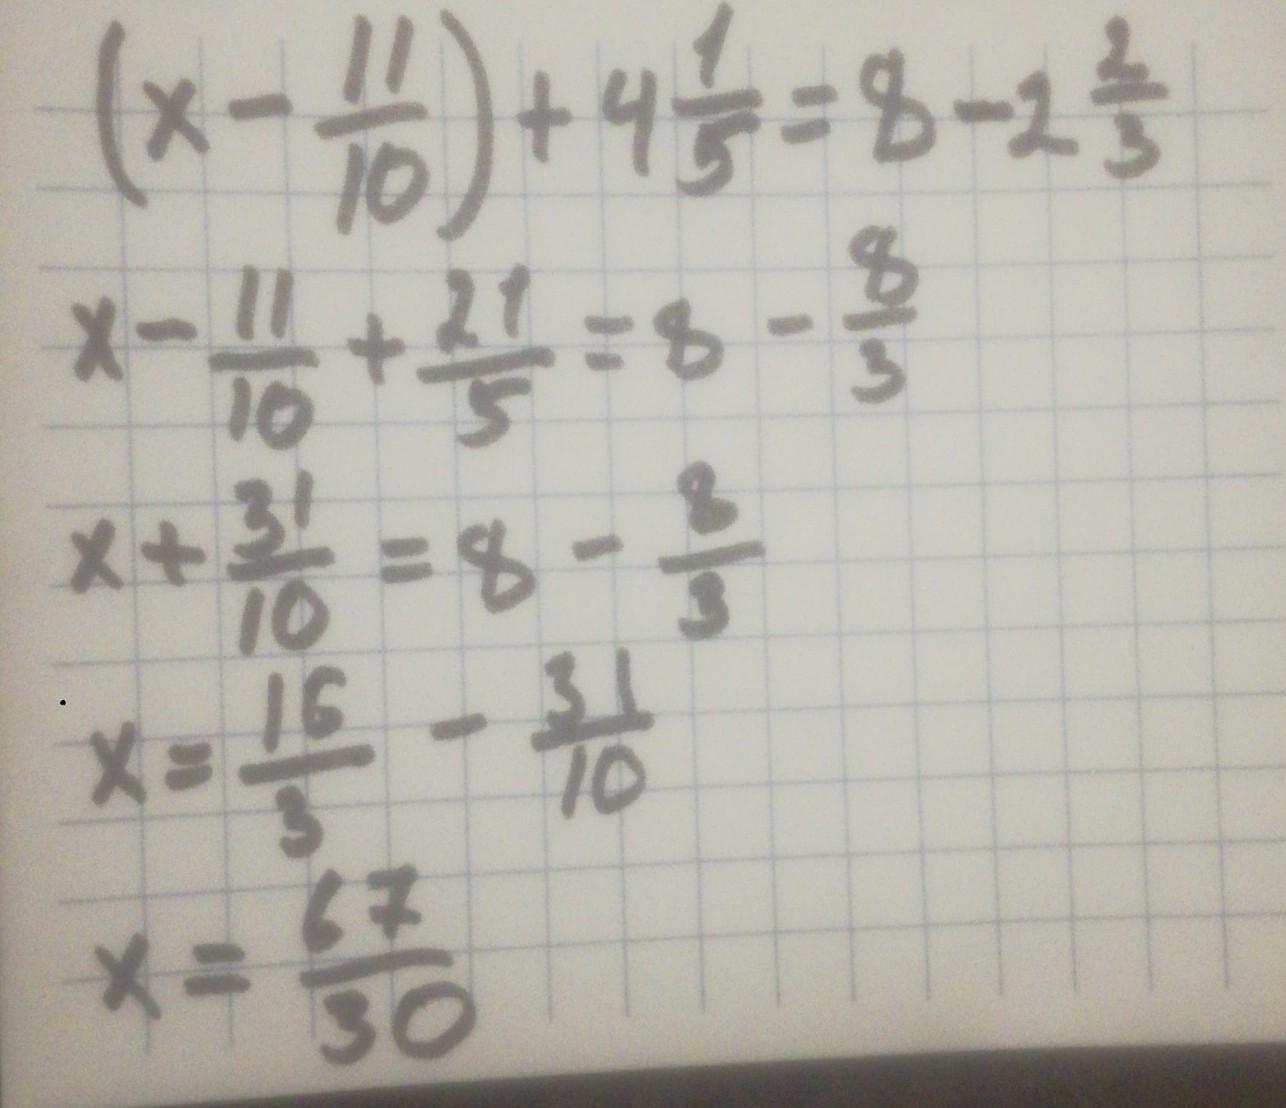 (x - 11/10) + 4 1/5 = 8 - 2 2/3
x - 11/10 + 21/5 = 8 - 8/3
x + 31/10 = 8 - 8/3
x = 16/3 - 31/10
x = 67/30